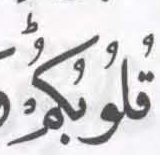 قُلُوبُكُمْ